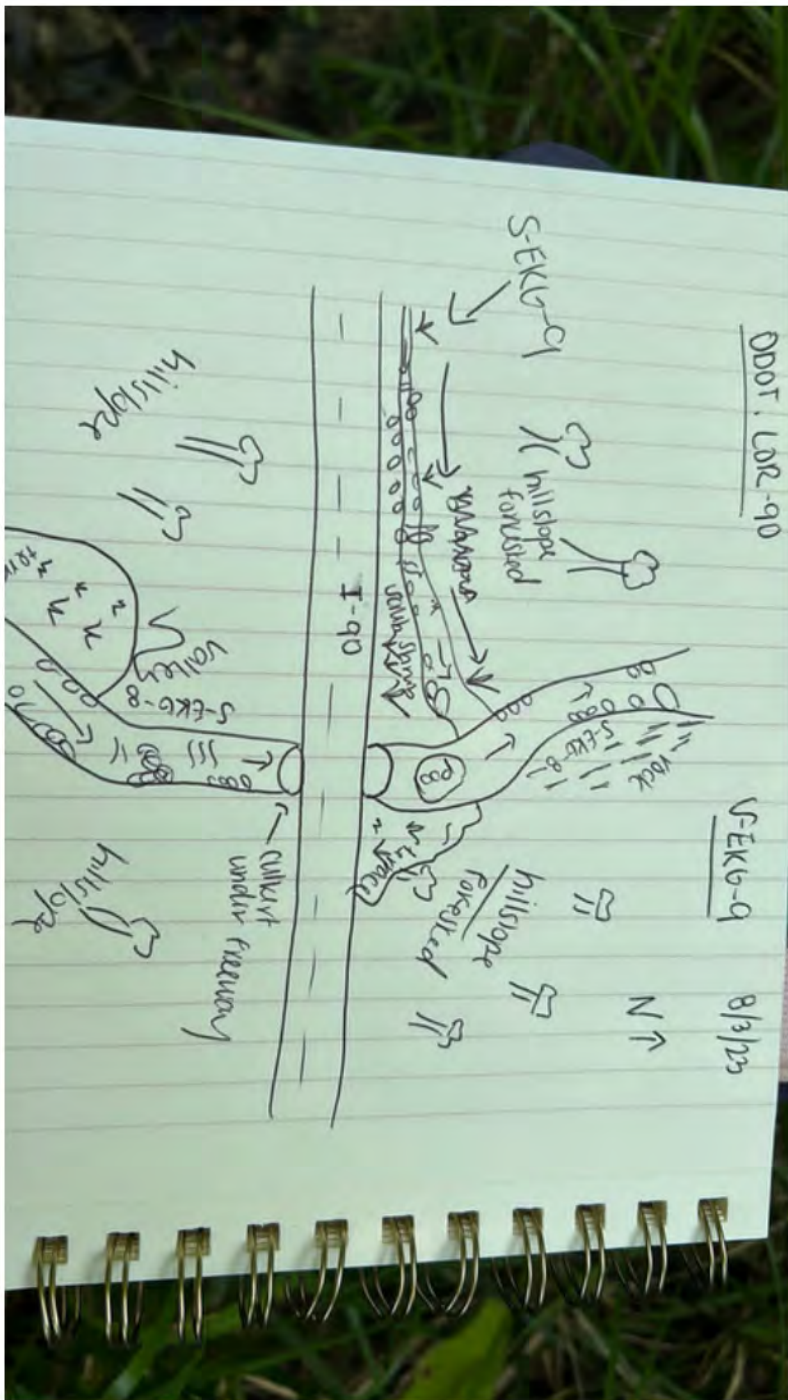 ODOT, LOR-90
8/3/23
N
S-EKG-9
hillslope
forested
rock
S-EKG-8
hillslope
forested
I-90
culvert
under freeway
hillslope
Valley
S-EKG-8
hillslope